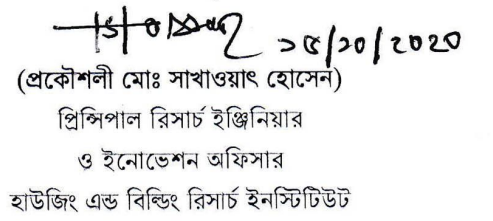 ১৫/১০/২০২০
(প্রকৌশলী মোঃ সাখাওয়াৎ হোসেন)
প্রিন্সিপাল রিসার্চ ইঞ্জিনিয়ার
ও ইনোভেশন অফিসার
হাউজিং এন্ড বিল্ডিং রিসার্চ ইনস্টিটিউট